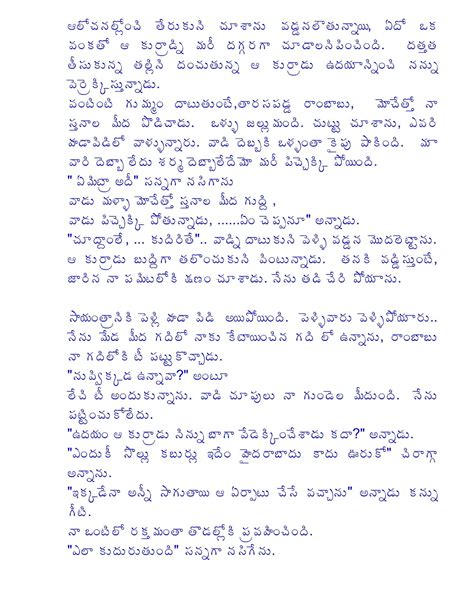 ఆలోచనల్లోంచి తేరుకుని చూశాను పడ్డనలౌతున్నాయి, ఏదో ఒక
వంకతో ఆ కుర్రాడ్ని మరీ దగ్గరగా చూడాలనిపించింది. దత్తత
తీసుకున్న తల్లిని దంచుతున్న ఆ కుర్రాడు ఉదయాన్నించి నన్ను
పెర్రెక్కిస్తున్నాడు.
వంటింటి గుమ్మం దాటుతుంటే,తారసపడ్డ రాంబాబు, మోచేత్తో నా
స్తనాల మీద పొడిచాడు. ఒళ్ళు జల్లుమంది. చుట్టు చూశాను, ఎవరి
హడాపిడిలో వాళ్ళున్నారు. వాడి దెబ్బకి ఒళ్ళంతా కైపు పాకింది. మా
వారి దెబ్బా లేదు శర్మ దెబ్బాలేదేమో మరీ పిచ్చెక్కి పోయింది.
" ఏమిట్రా అదీ" సన్నగా నసిగాను
వాడు మళ్ళా మోచేత్తో స్తనాల మీద గుద్ది ,
వాడు పిచ్చెక్కి పోతున్నాడు, ......ఏం చెప్పనూ" అన్నాడు.
"చూద్దాంలే, ... కుదిరితే".. వాడ్ని దాటుకుని పెళ్ళి పడ్డన మొదలెట్టాను.
ఆ కుర్రాడు బుద్దిగా తలొంచుకుని వింటున్నాడు. తనకి పడ్డిస్తుంటే,
జారిన నా పమిటలోకి క్షణం చూశాడు. నేను తడి చేరి పోయాను.
సాయంత్రానికి పెళ్లి హడా పిడి అయిపోయింది. పెళ్ళివారు వెళ్ళిపోయారు..
నేను మేడ మీద గదిలో నాకు కేటాయించిన గది లో ఉన్నాను, రాంబాబు
నా గదిలోకి టీ పట్టుకొచ్చాడు.
"నువ్విక్కడ ఉన్నావా?" అంటూ
లేచి టీ అందుకున్నాను. వాడి చూపులు నా గుండెల మీదుంది. నేను
పట్టించుకోలేదు.
"ఉదయం ఆ కుర్రాడు నిన్ను బాగా వేడెక్కించేశాడు కదా?" అన్నాడు.
"ఎందుకీ సొల్లు కబుర్లు ఇదేం హైదరాబాదు కాదు ఊరుకో" చిరాగ్గా
అన్నాను.
"ఇక్కడేనా అన్నీ సాగుతాయి ఆ ఏర్పాటు చేసే వచ్చాను" అన్నాడు కన్ను
గీటి.
నా ఒంటిలో రక్తమంతా తొడల్లోకి ప్రవహించింది.
"ఎలా కుదురుతుంది" సన్నగా నసిగేను.